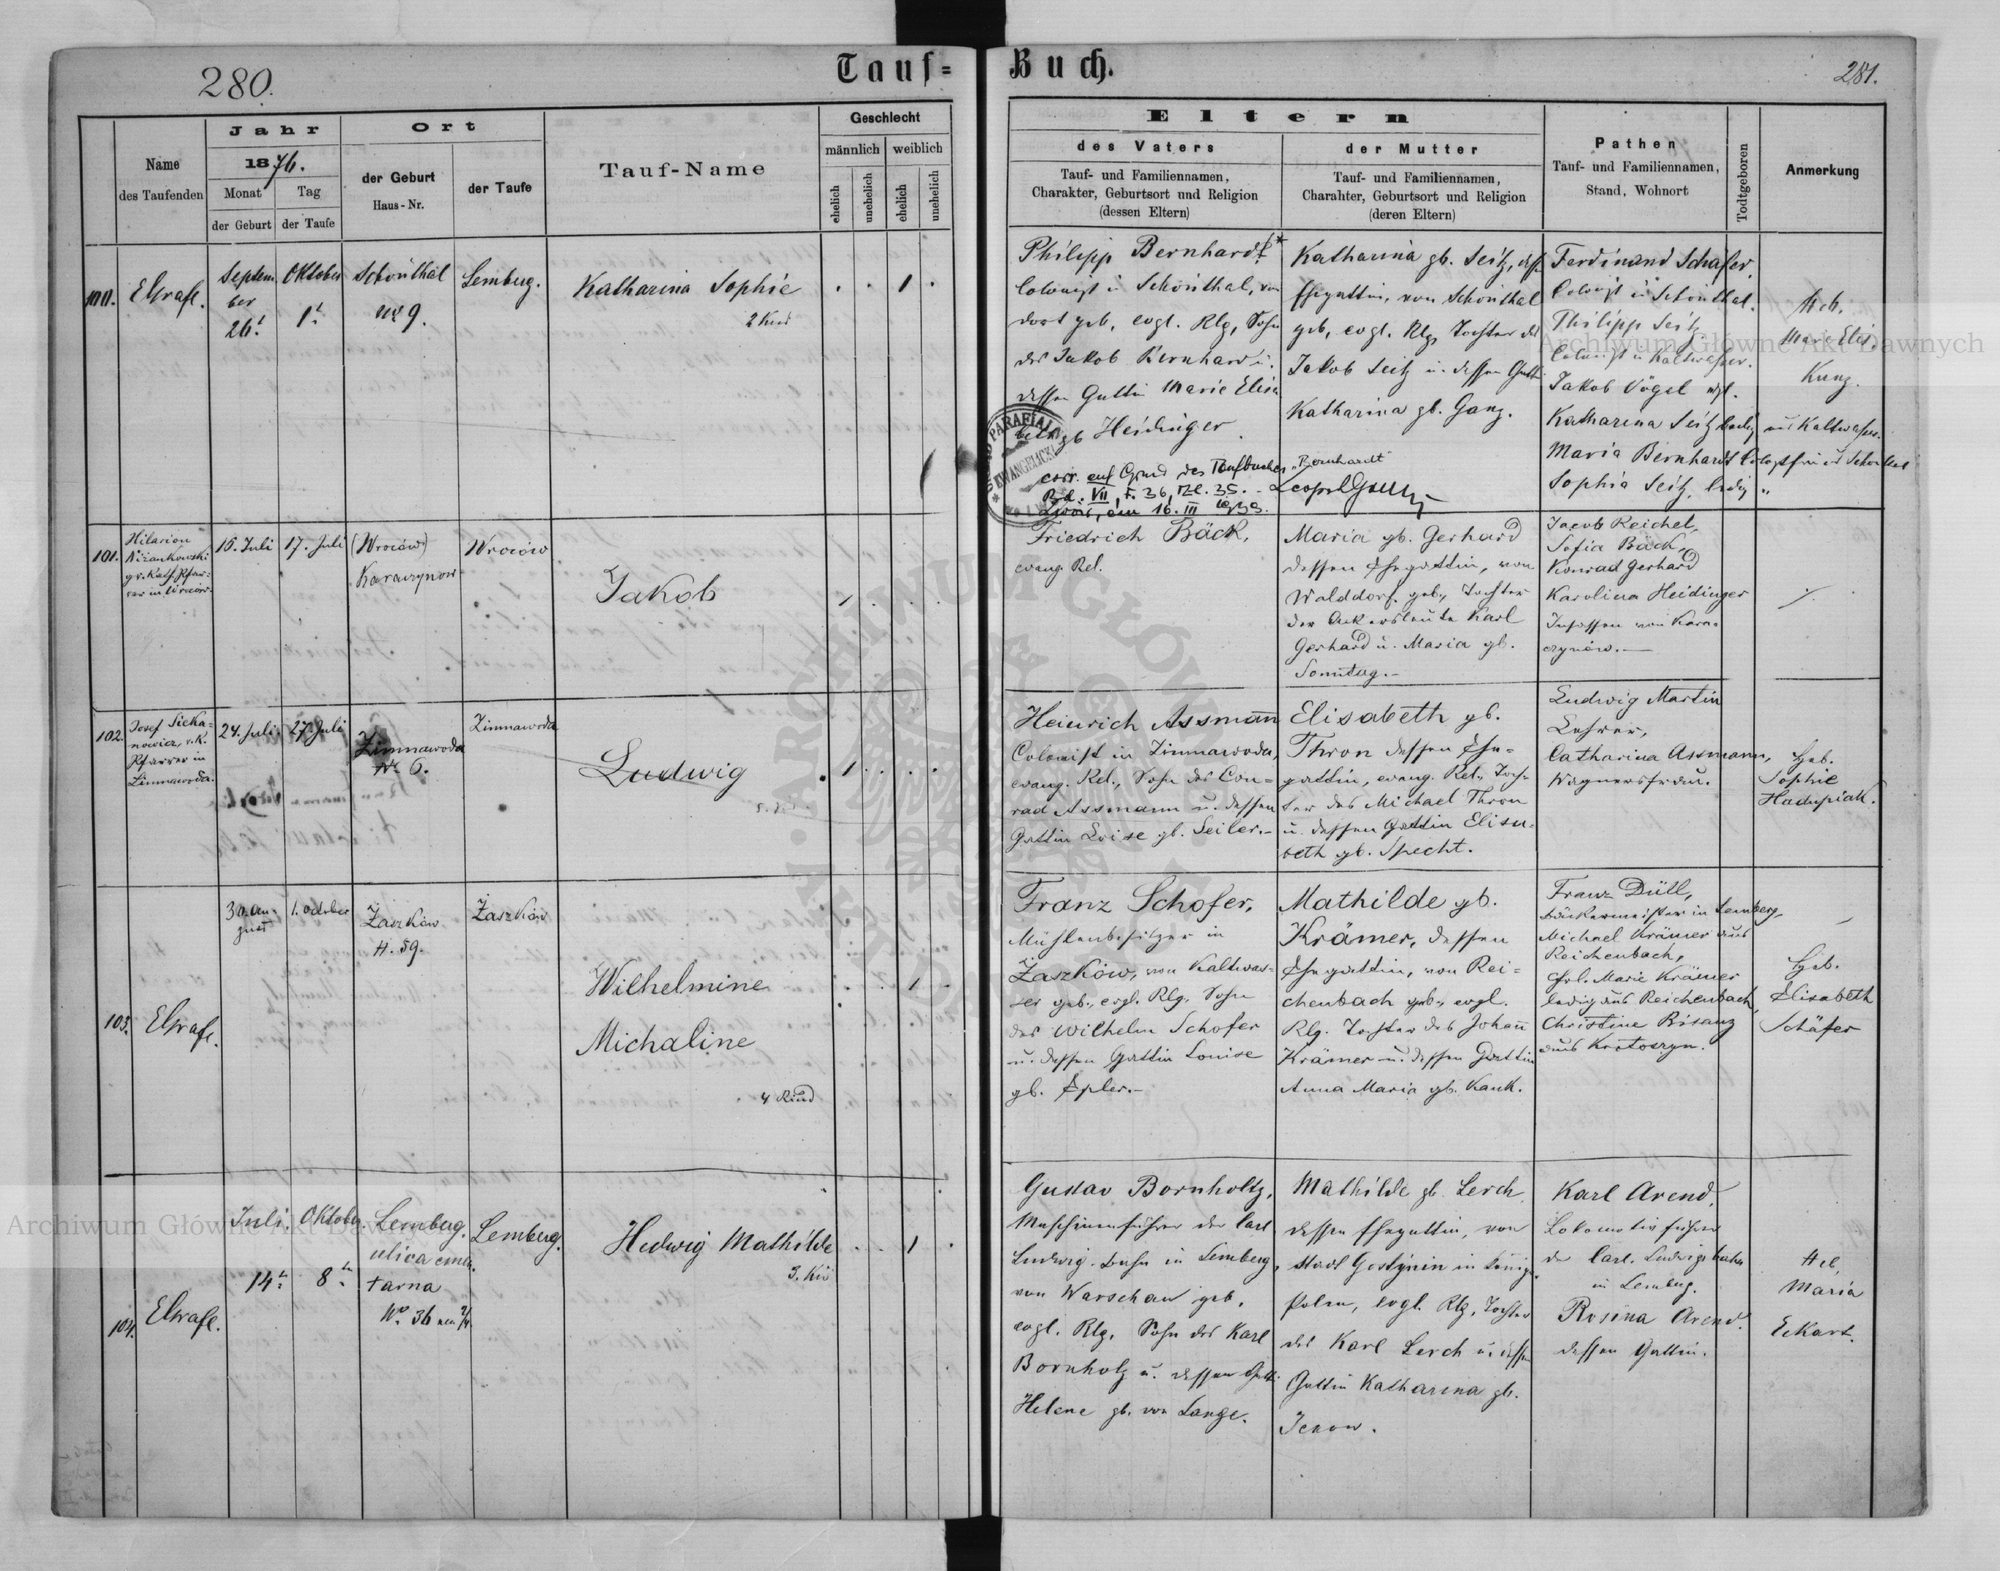 280.
Tauf=
Buch.
281.
Name
des Taufenden
Jahr
1876.
Monat
Tag
der Geburt
der Taufe
Ort
der Geburt
Haus-Nr.
der Taufe
Tauf-Name
Geschlecht
männlich
weiblich
ehelich
unehelich
ehelich
unehelich
Eltern
des Vaters
Tauf- und Familiennamen,
Charakter, Geburtsort und Religion
(dessen Eltern)
der Mutter
Tauf- und Familiennamen,
Charahter, Geburtsort und Religion
(deren Eltern)
Pathen
Tauf- und Familiennamen,
Stand, Wohnort
Todtgeboren
Anmerkung
100.
Elsrafe.
Septem
ber
26t
Oktober
1t
Schönthal
No 9.
Lemberg.
Katharina Sophie
2 Kind
1
Philipp Bernhardt*
Colonist in Schönthal, von
dort geb, evgl. Rlg, Sohn
des Jakob Bernhard u.
dessen Gattin Marie Elisa
beth gb Heidinger.
corr. auf Grund des Taufbuches "Bernhardt"
Bd. VII, F. 36, Zl. 35.
Lwów, am 16. III 1938.
Katharina gb. Seitz, dess
Ehegattin, von Schönthal
geb, evgl. Rlg, Tochter des
Jakob Seitz u. dessen Gatt
Katharina gb. Ganz.
Ferdinand Schäfer,
Colonist in Schönthal.
Philipp Seitz
Colonist in Kaltwasser.
Jakob Vögel
Katharina Seitz ledig aus Kaltwasser.
Maria Bernhardt
Sophia Seitz, ledig "
Heb.
Marie Elis.
Kunz.
101.
Hilarion
Niżankowski
gr. Kath. Pfar-
rer in Wrocow.
15. Juli
17. Juli
(Wrocow)
Karaczynow
Wrocow
Jakob
1
Friedrich Bäck,
evang. Rel.
Maria gb. Gerhard
dessen Ehegattin, von
Walddorf geb., Tochter
der Ackersleute Karl
Gerhard u. Maria gb.
Sonntag.-
Jacob Reichel,
Sofia Bäck,
Konrad Gerhard
Karolina Heidinger
Insassen von Kara-
czynów.
102.
Josef Sieka-
nowicz, r. k.
Pfarrer in
Zimnawoda.
24. Juli
27. Juli
Zimnawoda
No 6.
Zimnawoda
Ludwig
1
Heinrich Assmann
Colonist in Zimnawoda,
evang. Rel., Sohn des Con-
rad Assmann u. dessen
Gattin Loise gb. Seiler.-
Elisabeth gb.
Thron dessen Ehe-
gattin, evang. Rel., Toch-
ter des Michael Thron
u. dessen Gattin Elisa-
beth gb. Specht.
Ludwig Martin
Lehrer,
Catharina Assmann,
Wagnersfrau.
Heb.
Sophie
Hadupiak.
103.
Elsrafe.
30. Au-
gust
1. October
Żaszków
H. 59.
Żaszków
Wilhelmine
Michaline
4 Kind
1
Franz Schofer,
Mühlenbesitzer in
Żaszków, von Kaltwas-
ser geb., evgl. Rlg. Sohn
des Wilhelm Schofer
u. dessen Gattin Louise
gb. Epler.-
Mathilde gb.
Krämer, dessen
Ehegattin, von Rei-
chenbach geb., evgl.
Rlg. Tochter des Johann
Krämer u. dessen Gattin
Anna Maria gb. Kauk.
Franz Düll,
Bäckermeister in Lemberg,
Michael Krämer aus
Reichenbach,
Frl. Marie Krämer
ledig aus Reichenbach,
Christine Bisanz
aus Krotoszyn.
Heb.
Elisabeth
Schäfer
104.
Elsrafe.
Juli
14t
Oktober
8t
Lemberg.
ulica cmen
tarna
No. 36
Lemberg.
Hedwig Mathilde
3. Kin
1
Gustav Bornholtz,
Maschinenführer der Carl
Ludwig Bahn in Lemberg,
von Warschau geb,
evgl. Rlg, Sohn des Karl
Bornholz u. dessen Gatti
Helene gb. von Lange.
Mathilde gb. Lerch
dessen Ehegattin, von
Stadt Gostynin in Königr.
Polen, evgl. Rlg, Tochter
des Karl Lerch u. dessen
Gattin Katharina gb.
Jenow.
Karl Arend,
Lokomotivführer
der Carl Ludwigs bahn
in Lemberg.
Rosina Arend.
dessen Gattin.
Heb.
Maria
Eckart.
Archiwum Główne Akt Dawnych
Archiwum Główne Akt Dawnych